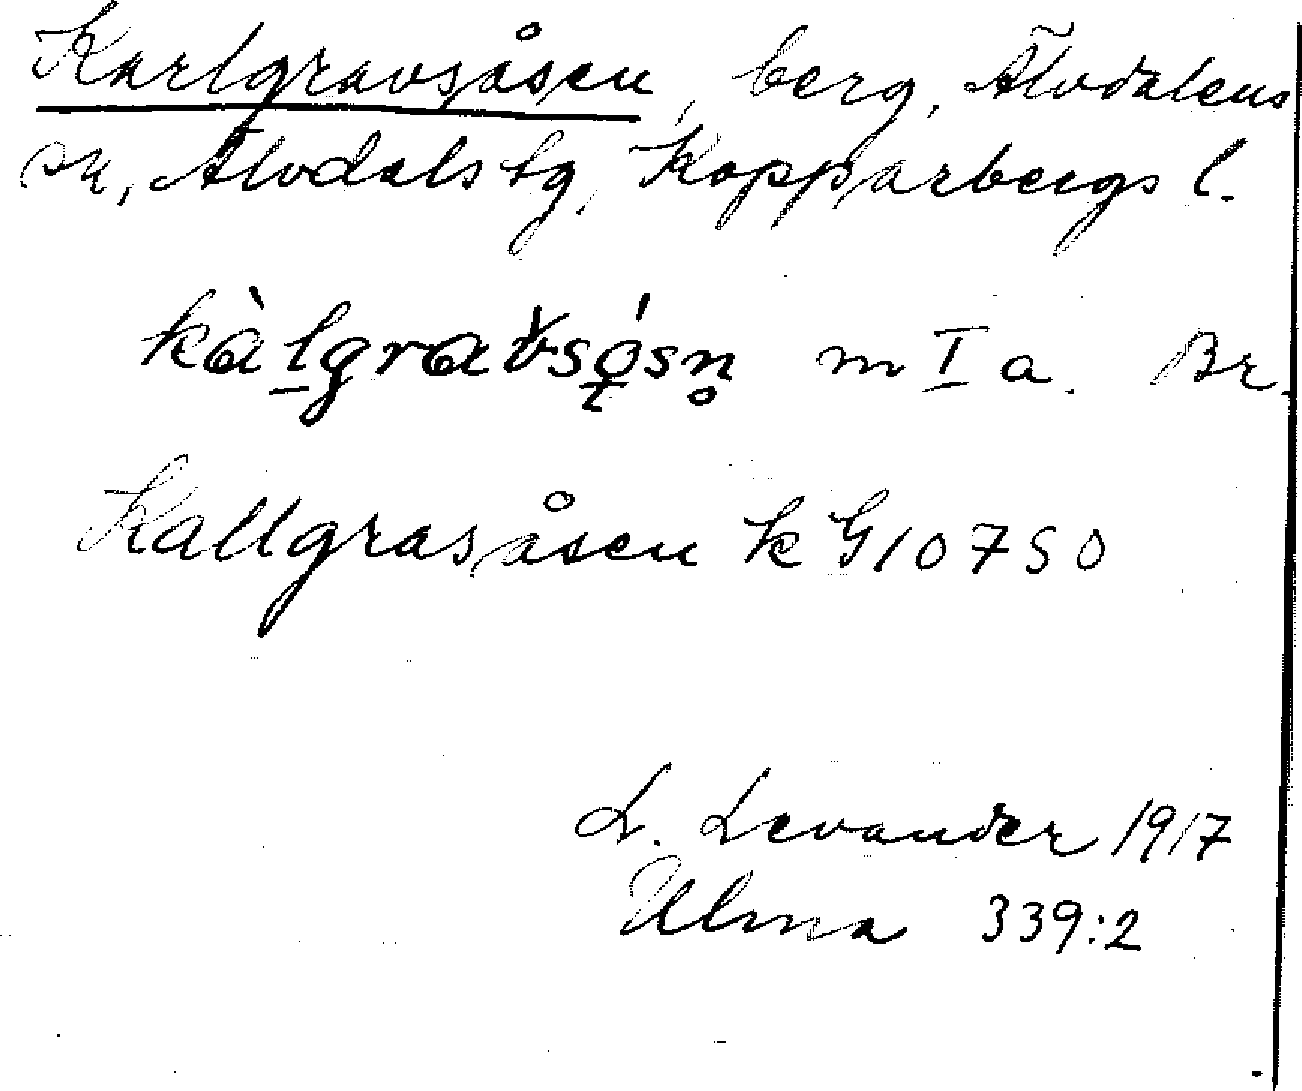 Karlgravsåsen, berg, Älvdalens
sn, Älvdals tg, Kopparbergs l.
kàl̠grav̌sǫ́sn̥ m I a. Br.
Kallgrasåsen k G10750
L. Levander 1917
Ulma 339:2